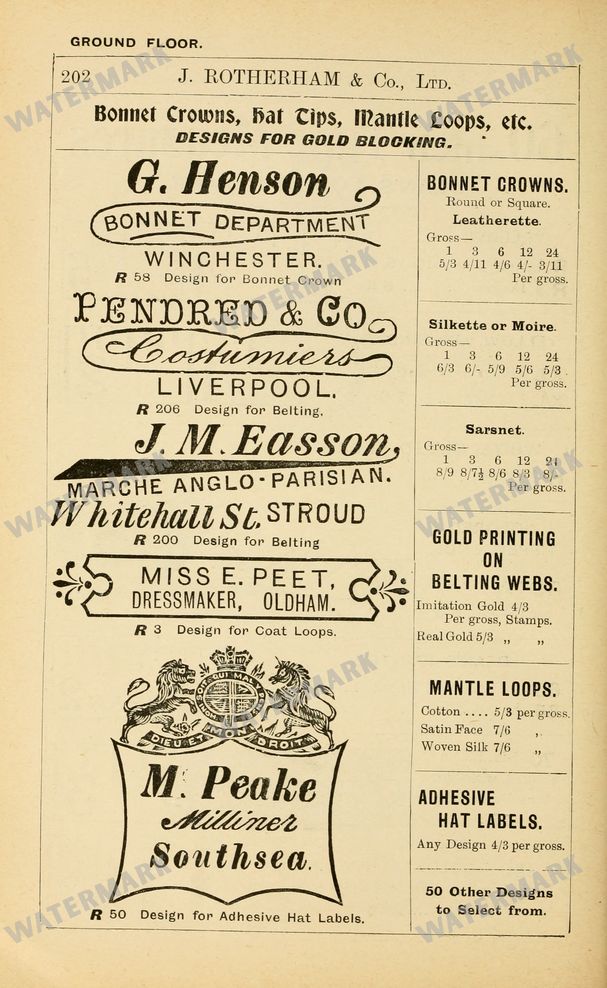 GROUND FLOOR.
202 J. ROTHERHAM & Co., LTD.
Bonnet Crowns, Hat Tips, Mantle Loops, etc.
DESIGNS FOR GOLD BLOCKING.
G. Henson
BONNET DEPARTMENT
WINCHESTER.
R 58 Design for Bonnet Crown
PENDRED & CO
Costumiers
LIVERPOOL.
R 206 Design for Belting.
J. M. Easson,
MARCHE ANGLO-PARISIAN.
Whitehall St. STROUD
R 200 Design for Belting
MISS E. PEET,
DRESSMAKER, OLDHAM.
R 3 Design for Coat Loops.
HONI SOIT QUI MAL Y PENSE
DIEU ET MON DROIT
M. Peake
Milliner
Southsea.
R 50 Design for Adhesive Hat Labels.
BONNET CROWNS.
Round or Square.
Leatherette.
Gross—
1 3 6 12 24
5/3 4/11 4/6 4/- 3/11
Per gross.
Silkette or Moire.
Gross—
1 3 6 12 24
6/3 6/- 5/9 5/6 5/3
Per gross.
Sarsnet.
Gross—
1 3 6 12 24
8/9 8/7½ 8/6 8/3 8/-
Per gross.
GOLD PRINTING
ON
BELTING WEBS.
Imitation Gold 4/3
Per gross, Stamps.
Real Gold 5/3 „ „
MANTLE LOOPS.
Cotton .... 5/3 per gross.
Satin Face 7/6 „
Woven Silk 7/6 „
ADHESIVE
HAT LABELS.
Any Design 4/3 per gross.
50 Other Designs
to Select from.
WATERMARK
WATERMARK
WATERMARK
WATERMARK
WATERMARK
WATERMARK
WATERMARK
WATERMARK